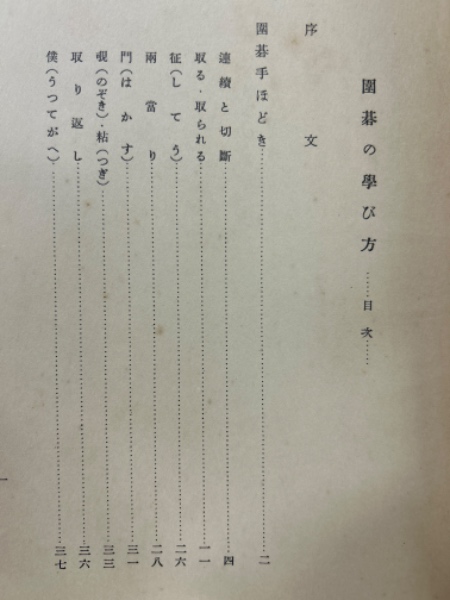 圍碁の學び方……目次……
序文
圍碁手ほどき……二
連續と切斷……四
取る・取られる……一一
征(してう)……二六
兩當り……二八
門(はかす)……三一
覗(のぞき)・粘(つぎ)……三三
取り返し……三六
僕(うつてがへ)……三七
一